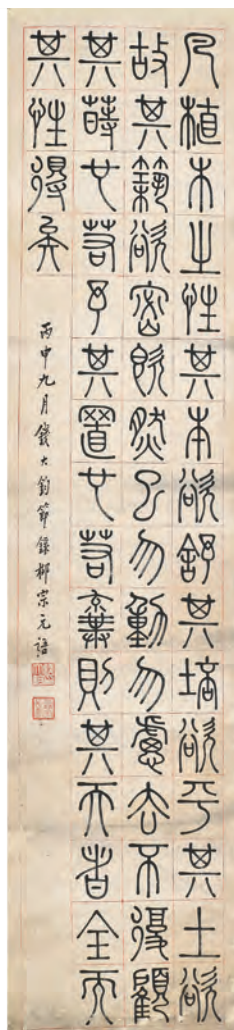 凡植木之性其本欲舒其培欲平其土欲
故其築欲密既然已勿動勿慮去不復顧
其蒔也若子其置也若棄則其天者全而
其性得矣
丙申九月錢大鈞節錄柳宗元語